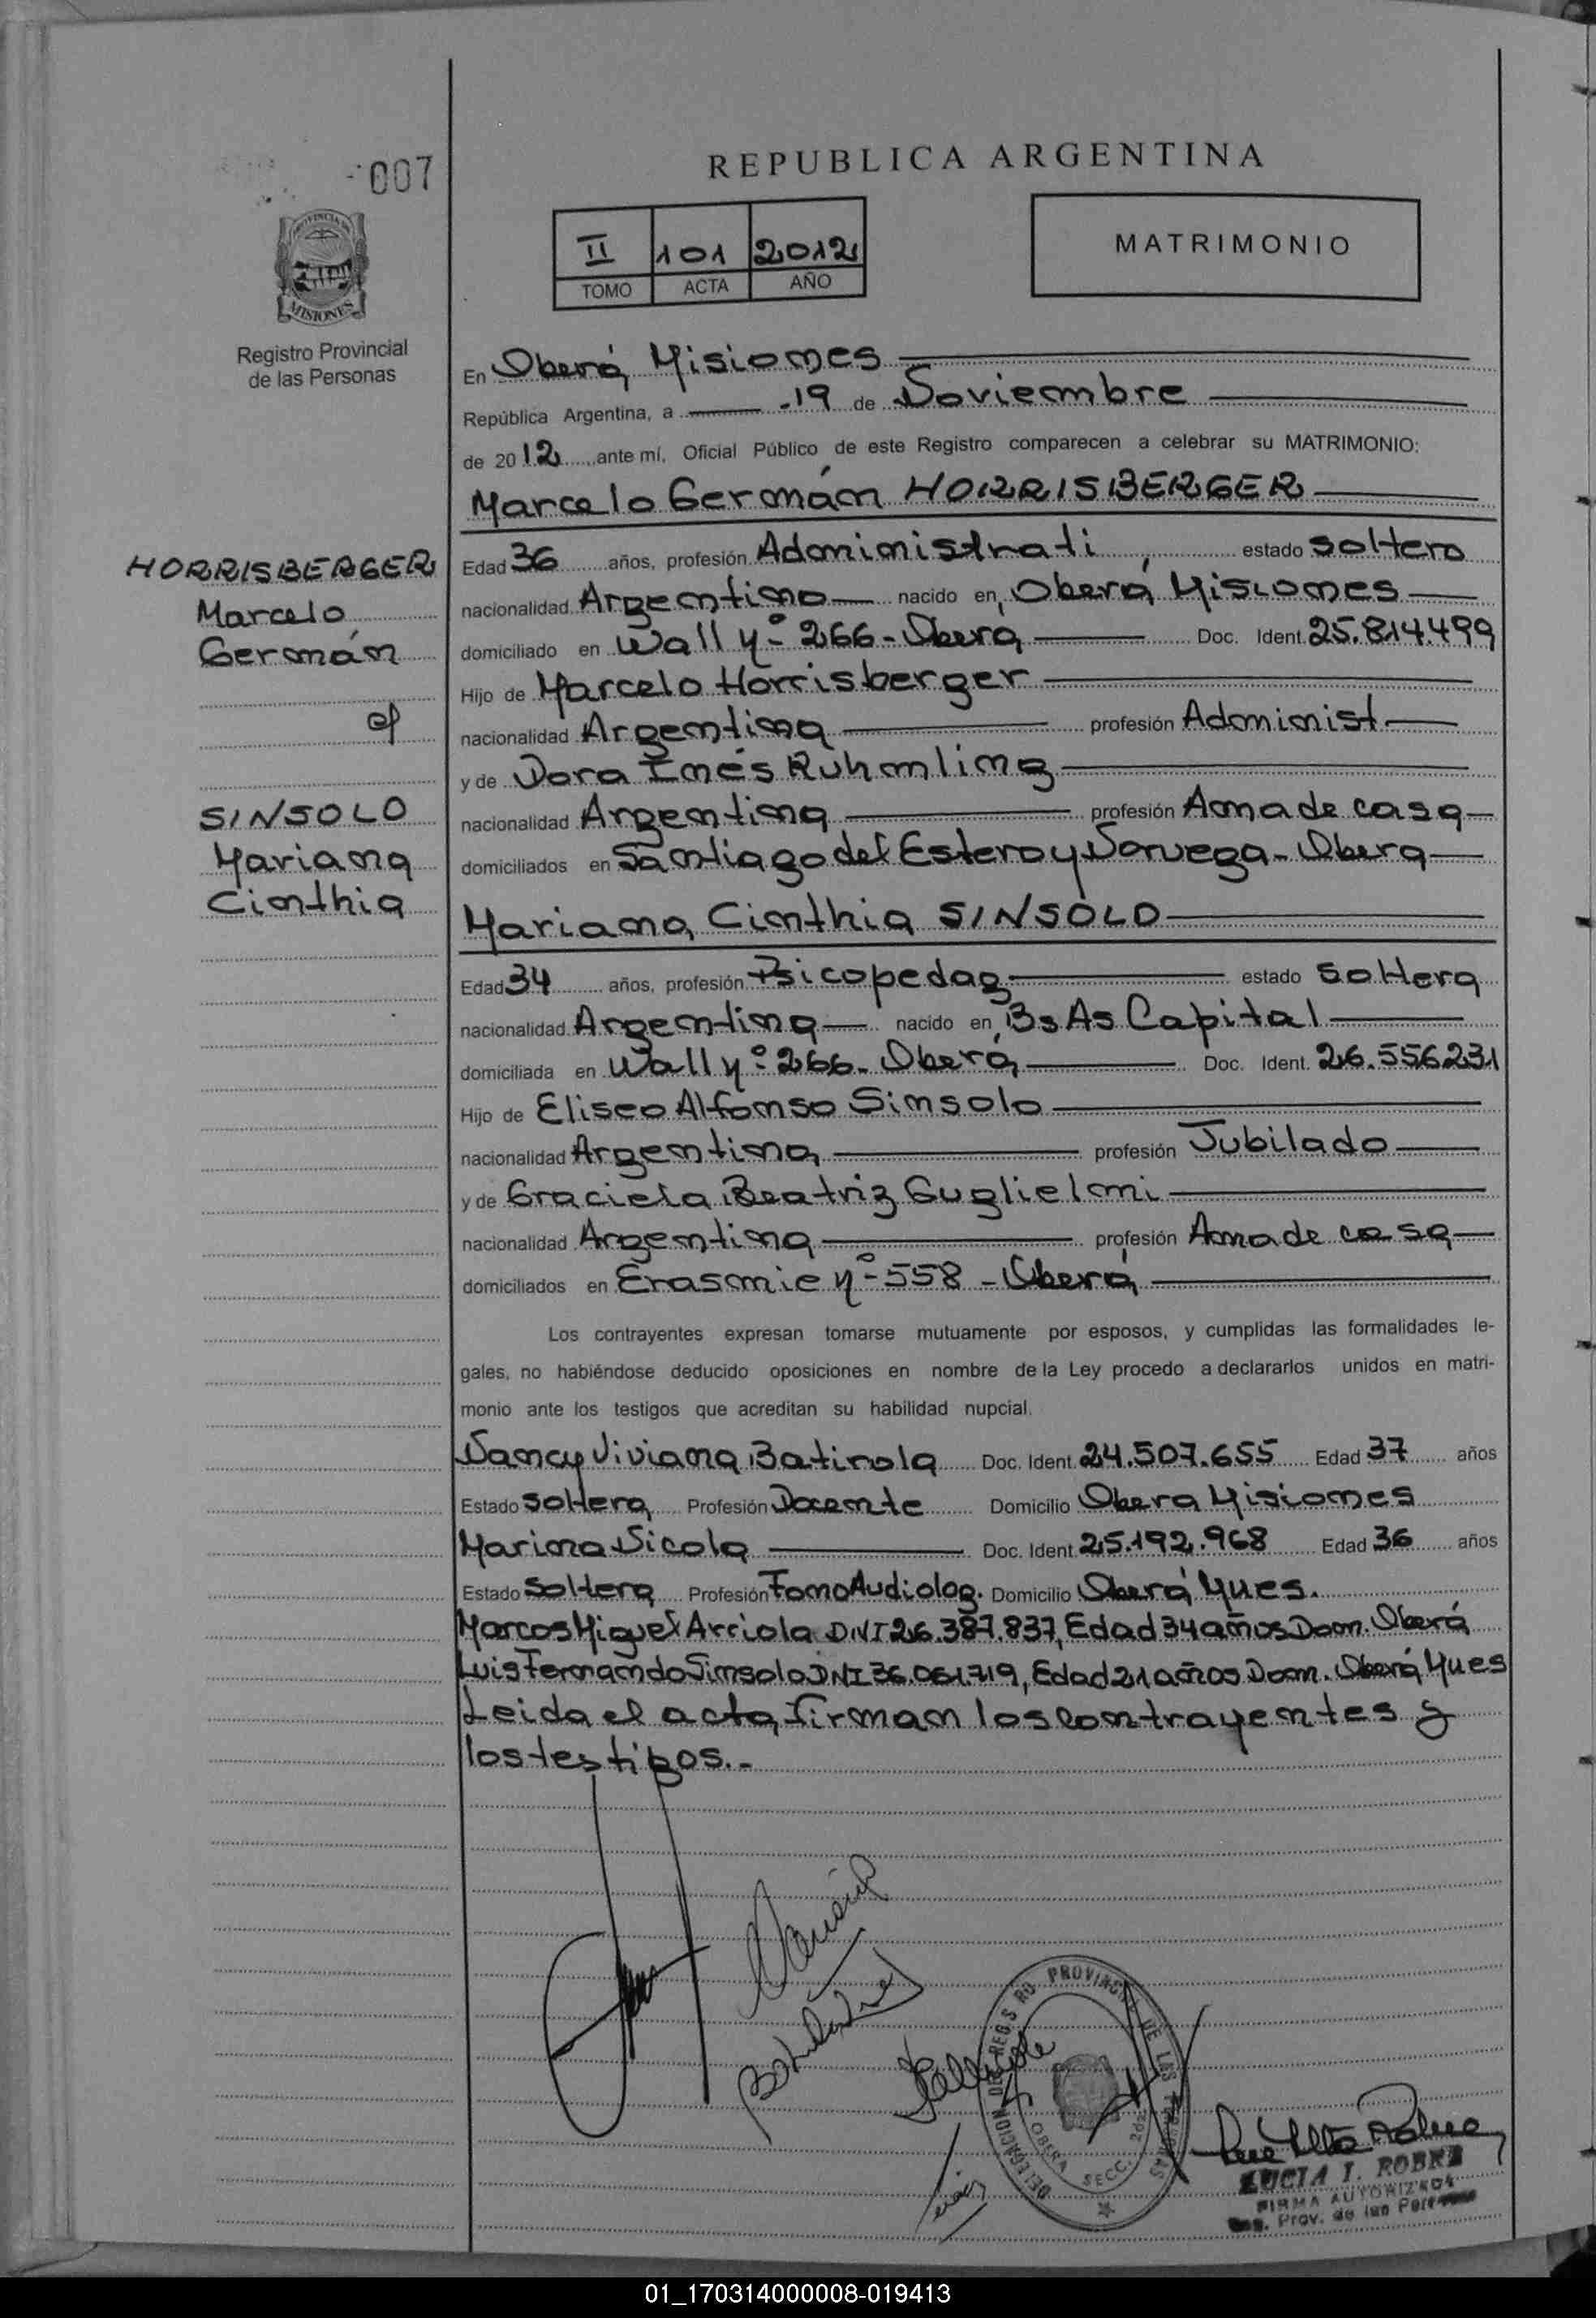 007
REPUBLICA ARGENTINA
II 101 2012
TOMO ACTA AÑO
MATRIMONIO
PROVINCIA
MISIONES
Registro Provincial
de las Personas
En Oberá Misiones
República Argentina, a 19 de Noviembre
de 2012 ante mí, Oficial Público de este Registro comparecen a celebrar su MATRIMONIO:
Marcelo Germán HORRISBERGER
HORRISBERGER
Marcelo
Germán
c/
SINSOLO
Mariana
Cinthia
Edad 36 años, profesión Administrati estado soltero
nacionalidad Argentino nacido en Oberá Misiones
domiciliado en Wall Nº 266 - Oberá Doc. Ident. 25.814.499
Hijo de Marcelo Horrisberger
nacionalidad Argentina profesión Administ
y de Dora Inés Ruhmling
nacionalidad Argentina profesión Ama de casa
domiciliados en Santiago del Estero y Noruega - Oberá
Mariana Cinthia SINSOLO
Edad 34 años, profesión Psicopedag estado soltera
nacionalidad Argentina nacido en Bs As Capital
domiciliada en Wall Nº 266 - Oberá Doc. Ident. 26.556231
Hijo de Eliseo Alfonso Sinsolo
nacionalidad Argentina profesión Jubilado
y de Graciela Beatriz Guglielmi
nacionalidad Argentina profesión Ama de casa
domiciliados en Erasmie Nº 558 - Oberá
Los contrayentes expresan tomarse mutuamente por esposos, y cumplidas las formalidades le-
gales, no habiéndose deducido oposiciones en nombre de la Ley procedo a declararlos unidos en matri-
monio ante los testigos que acreditan su habilidad nupcial.
Nancy Viviana Batirola Doc. Ident. 24.507.655 Edad 37 años
Estado soltera Profesión Docente Domicilio Obera Misiones
Marina Nicola Doc. Ident. 25.192.968 Edad 36 años
Estado Soltera Profesión FonoAudiolog. Domicilio Oberá Mnes.
Marcos Miguel Arriola DNI 26.387.837, Edad 34 años Dom. Oberá
Luis Fernando Sinsolo DNI 36.061.719, Edad 21 años Dom. Oberá Mnes
Leida el acta, firman los contrayentes y
los testigos.-
DELEGACION REGISRO PROVINCIAL DE LAS PERSONAS
OBERA SECC. 2da
LUCIA I. ROBRE
FIRMA AUTORIZADA
Reg. Prov. de las Personas
01_170314000008-019413